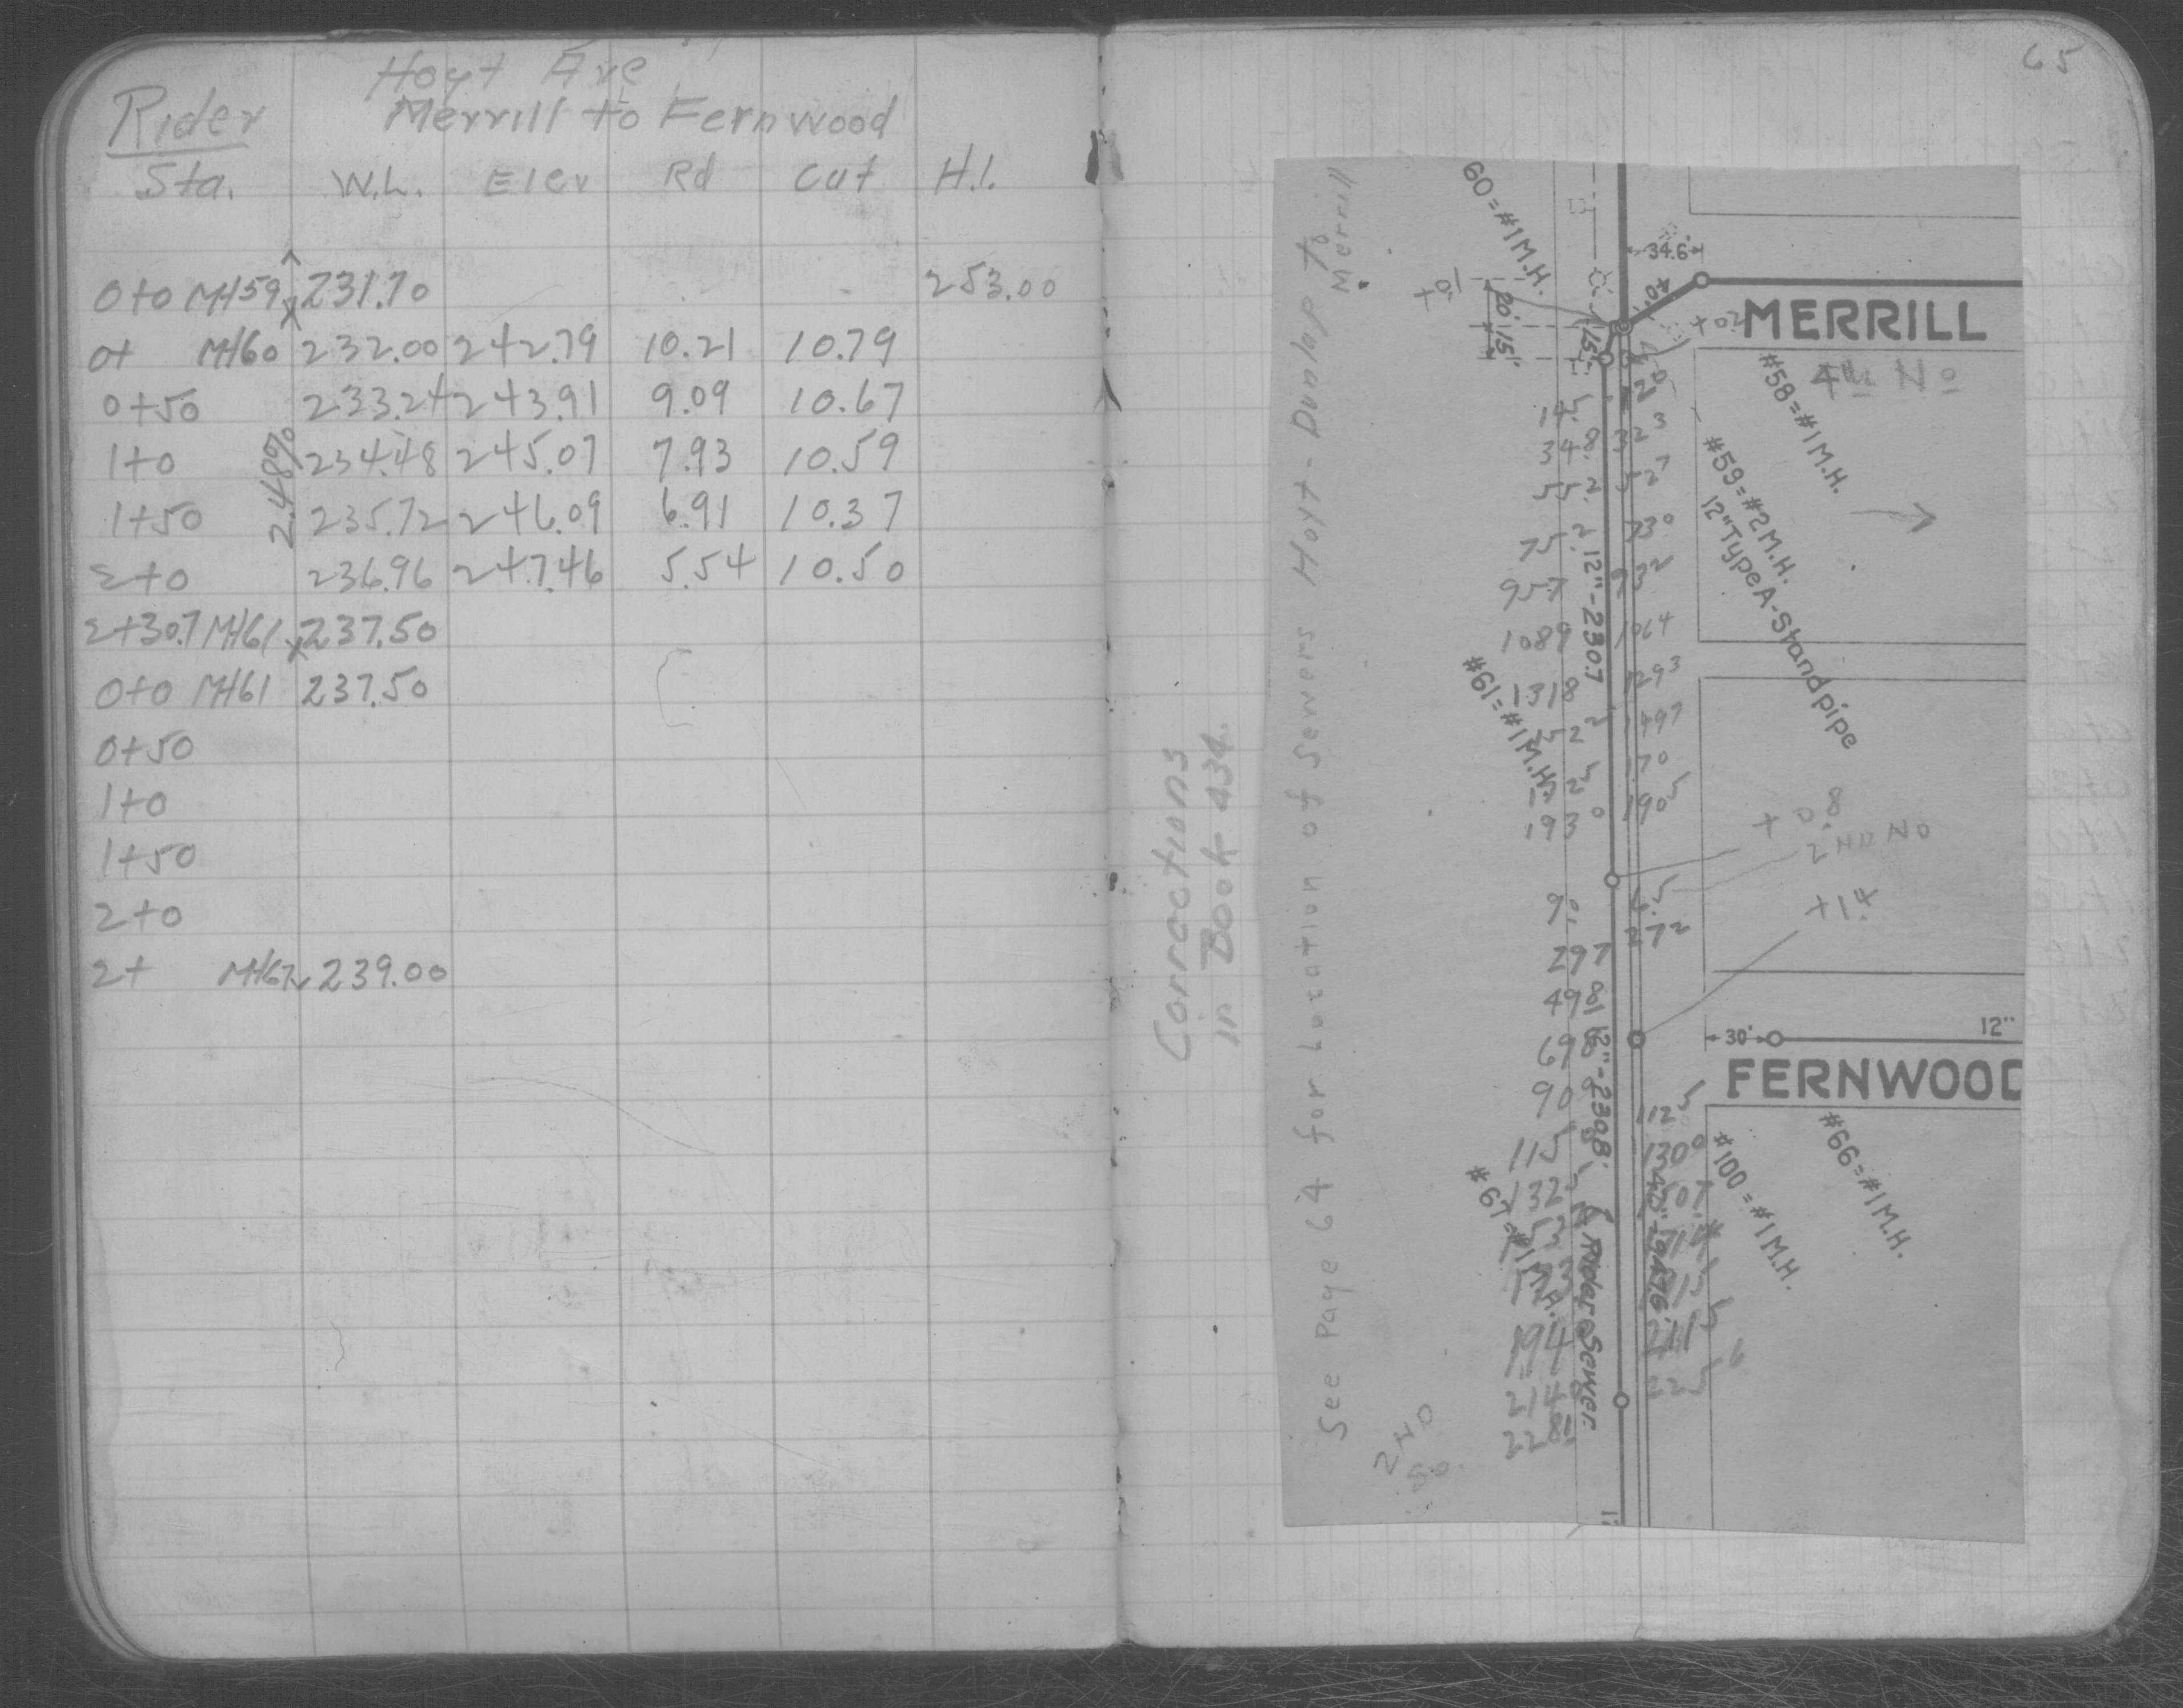 Hoyt Ave
Rider Merrill to Fernwood
Sta. W.L. Elev Rd Cut H.I.
0+0 MH59 231.70 253.00
0+ MH60 232.00 242.79 10.21 10.79
0+50 233.24 243.91 9.09 10.67
1+0 234.48 245.07 7.93 10.59
1+50 235.72 246.09 6.91 10.37
2+0 236.96 247.46 5.54 10.50
2.48%
2+30.7 MH61 237.50
0+0 MH61 237.50
0+50
1+0
1+50
2+0
2+ MH67 239.00
65
Corrections
in Book 434.
See Page 64 for Location of Sewers Hoyt - Dunlap to
Merrill
60=#1M.H.
34.6'
+0.1
20'
15'
15'
+0.2
MERRILL
4th No
#58=#1M.H.
#59=#2M.H.
12"TypeA-Standpipe
34.8 32.3
55.2 52.7
75.2 73.0
95.7 93.2
108.9 106.4
12"-230.7
131.8 129.3
#61=#1M.H.
149.7
170
193.0 190.5
+0.8
2ND NO
+1.4
29.7 27.2
49.8
90
12"-230.8'
30'
12"
FERNWOOD
112.5
115 130.0
132
#67=#1M.H.
#100=#1M.H.
#66=#1M.H.
Rider Sewer.
194 211.5
214 225.6
228.1
2ND
So.